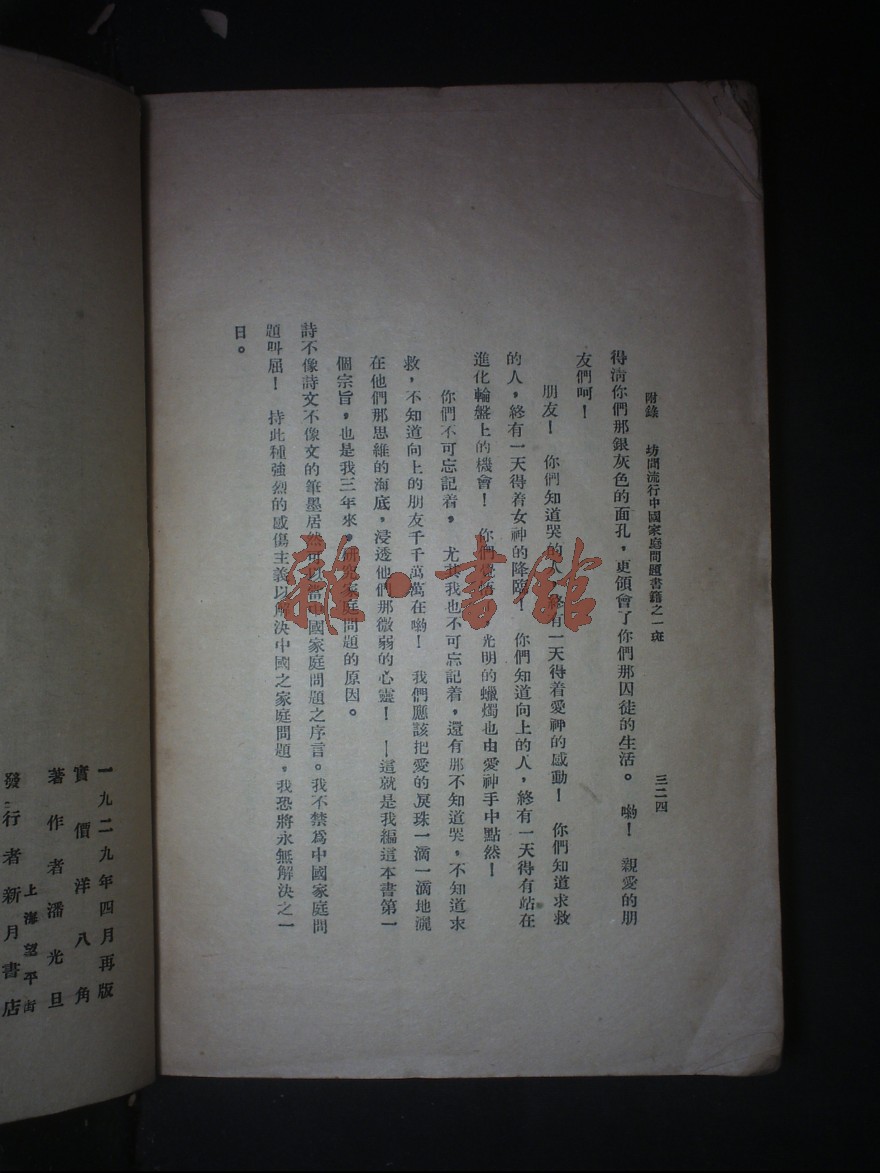 附錄　坊間流行中國家庭問題書籍之一斑　三二四
得清你們那銀灰色的面孔，更領會了你們那囚徒的生活。　喲！　親愛的朋
友們呵！
朋友！　你們知道哭的人，終有一天得着愛神的感動！　你們知道求救
的人，終有一天得着女神的降臨！　你們知道向上的人，終有一天得有站在
進化輪盤上的機會！　你們覺悟　光明的蠟燭也由愛神手中點然！
你們不可忘記着，尤其我也不可忘記着，還有那不知道哭，不知道求
救，不知道向上的朋友千千萬萬在喲！　我們應該把愛的淚珠一滴一滴地灑
在他們那思維的海底，浸透他們那微弱的心靈！　—這就是我編這本書第一
個宗旨，也是我三年來，研究家庭問題的原因。
詩不像詩文不像文的筆墨居然可以當中國家庭問題之序言。我不禁為中國家庭問
題叫屈！　持此種強烈的感傷主義以解決中國之家庭問題，我恐將永無解決之一
日。
一九二九年四月再版
實價洋八角
著作者潘光旦
上海望平街
發行者新月書店
雜·書館